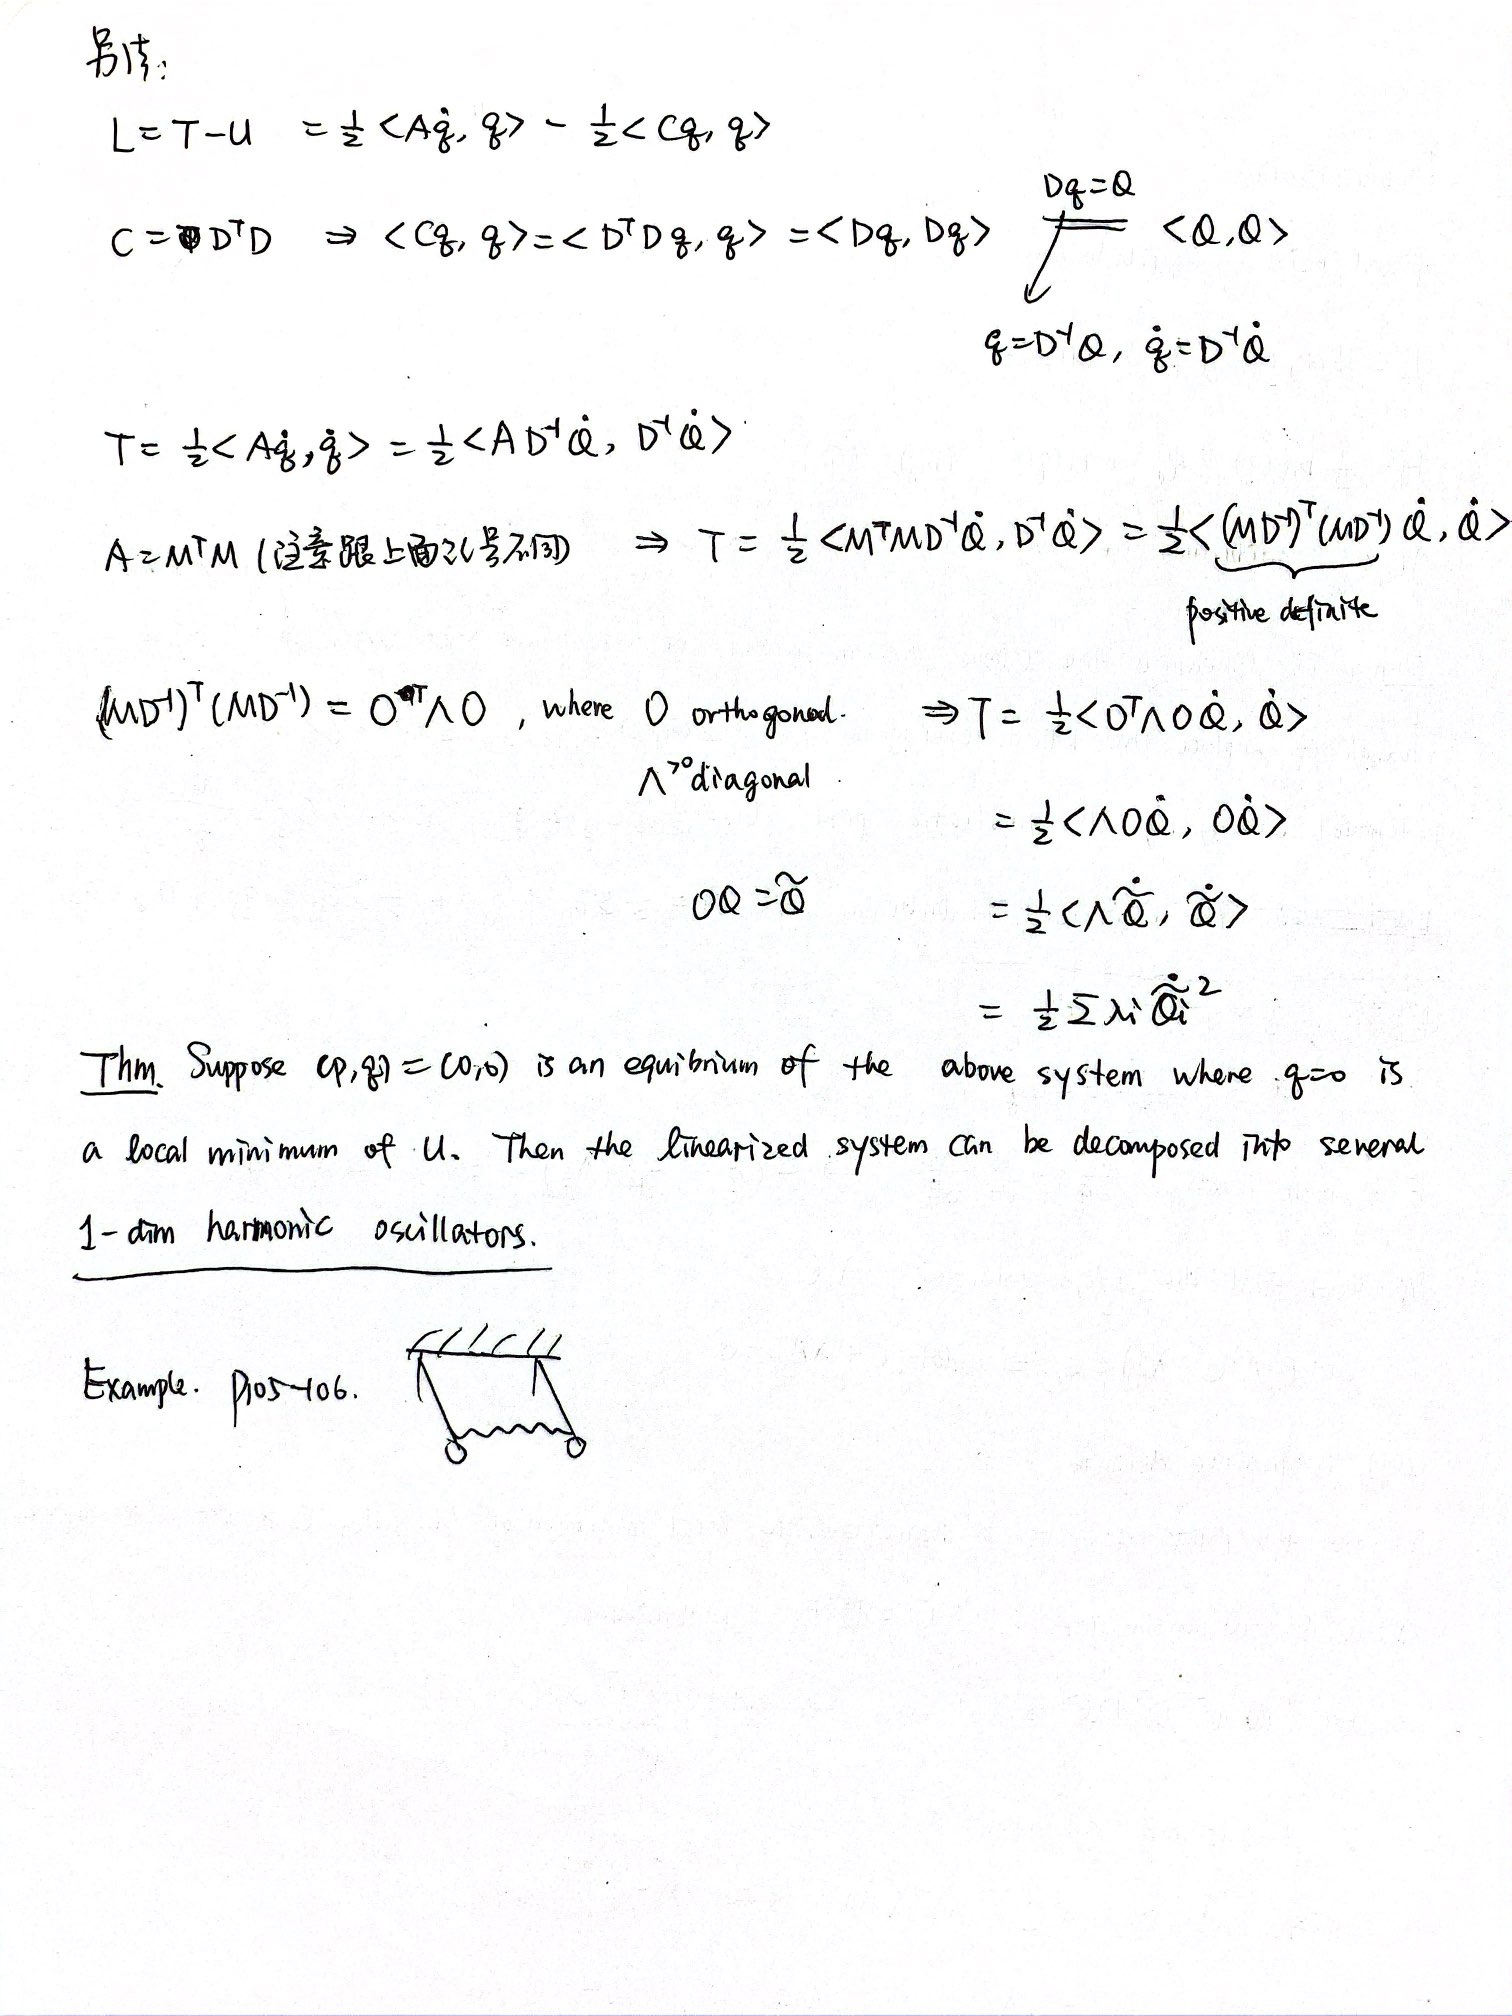 另法:
L = T - U = ½ <Aq̇, q> - ½ <Cq, q>
Dq = Q
C = DᵀD ⇒ <Cq, q> = <DᵀDq, q> = <Dq, Dq> = <Q, Q>
q = D⁻¹Q, q̇ = D⁻¹Q̇
T = ½ <Aq̇, q̇> = ½ <AD⁻¹Q̇, D⁻¹Q̇>
A = MᵀM (注意跟上面记号不同) ⇒ T = ½ <MᵀMD⁻¹Q̇, D⁻¹Q̇> = ½ <(MD⁻¹)ᵀ(MD⁻¹)Q̇, Q̇>
positive definite
(MD⁻¹)ᵀ(MD⁻¹) = OᵀΛO , where O orthogonal. ⇒ T = ½ <OᵀΛOQ̇, Q̇>
Λ>0 diagonal
= ½ <ΛOQ̇, OQ̇>
OQ = Q̃ = ½ <ΛQ̃̇, Q̃̇>
= ½ Σ λi Q̃̇i²
Thm. Suppose (p,q) = (0,0) is an equibrium of the above system where q=0 is
a local minimum of U. Then the linearized system can be decomposed into several
1-dim harmonic oscillators.
Example. P105-106.